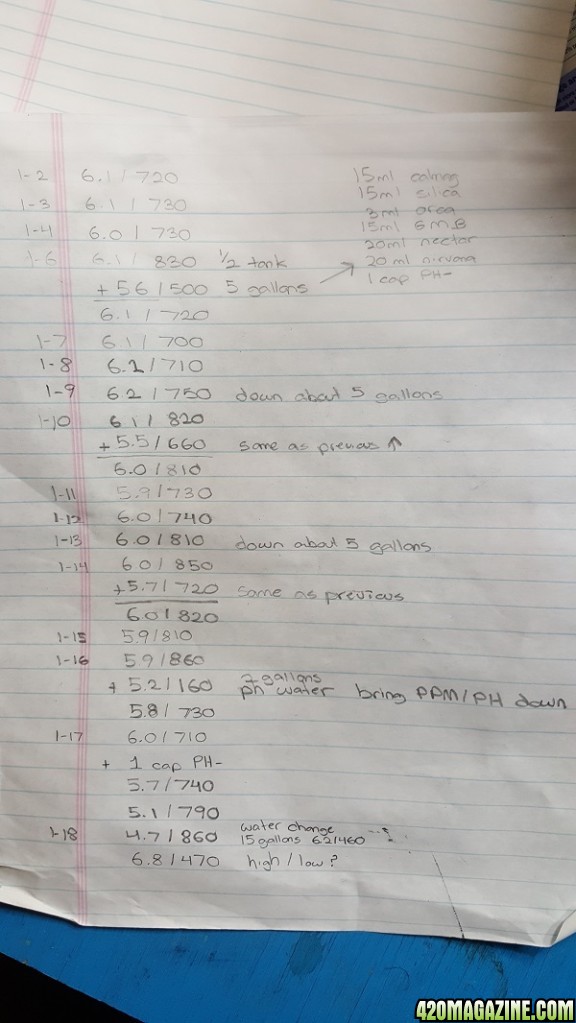 1-2 6.1/720 15ml calmag
15ml silica
1-3 6.1/730 3ml orca
1-4 6.0/730 15ml SMB
20ml nectar
1-6 6.1/830 1/2 tank 20ml nirvana
+ 56/500 5 gallons → 1 cap PH-
6.1/720
1-7 6.1/700
1-8 6.2/710
1-9 62/750 down about 5 gallons
1-10 6.1/820
+5.5/660 same as previous ↑
6.0/810
1-11 5.9/730
1-12 6.0/740
1-13 6.0/810 down about 5 gallons
1-14 60/850
+5.7/720 same as previous
6.0/820
1-15 59/810
1-16 59/860
+ 5.2/160 7 gallons
ph water bring PPM/PH down
5.8/730
1-17 6.0/710
+ 1 cap PH-
5.7/740
5.1/790
1-18 4.7/860 water change
15 gallons 62/460
6.8/470 high/low?
420MAGAZINE.COM